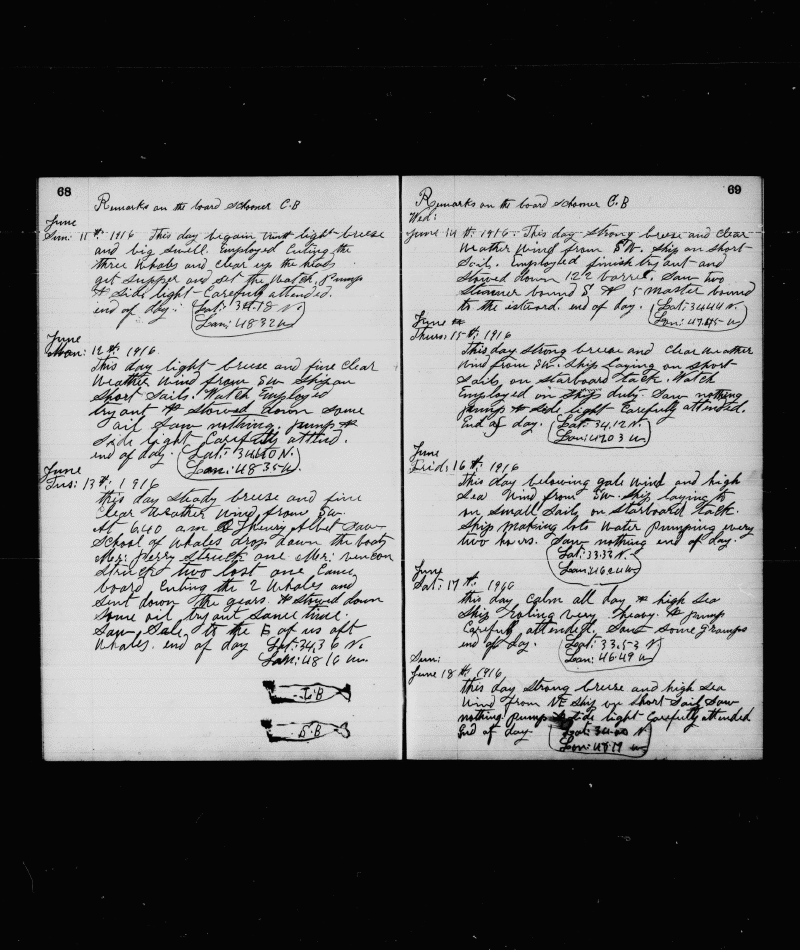 68
Remarks on the board Schooner C.B
June
Sun: 11th: 1916 This day begain with light breeze
and big swell. Employed Cuting the
three Whales and Clear up the heads
get Supper and Set the Watch. Pump
& Side light Carefully attended.
end of day. Lat: 34.18 N.
Lon: 48 32 W
June
Mon: 12th: 1916.
This day light breeze and fine Clear
Weather Wind from SW Ship on
Short Sails. Watch Employed
try out & Stowed down Some
oil Saw nothing. pump &
Side light Carefully attend.
end of day. Lat: N.
Lon: 48 35 W
June
Tus: 13th: 1916
this day Steady breeze and fine
Clear Weather Wind from SW.
At 6.40 a.m Saw
School of Whales drop down the boats
Mr: Perry Struck one Mr:
Struck two lost one Came
board Cuting the 2 Whales and
Sent down the gears. & Stowed down
Some oil try out Same time.
Saw Sale to the of us aft
Whales. end of day Lat: 34.36 N.
Lon: 48 16 W.
T.B
B
69
Remarks on the board Schooner C.B
Wed:
June 14th: 1916. This day Strong breeze and Clear
Weather Wind from SW. Ship on Short
Sail. Employed finish try out and
Stowed down 122 barrel. Saw two
Steamer bound S. & 5 Master bound
to the estward. end of day. Lat: 34.44 N.
Lon: 47.45 W
June
Thurs: 15th: 1916
This day Strong breeze and Clear Weather
Wind from SW. Ship Laying on Short
Sails, on Starboard tack. Watch
Employed on Ship duty Saw nothing
pump & Side light Carefully attended.
End of day. Lat: 34.12 N.
Lon: 47.03 W
June
Frid: 16th: 1916
This day belowing gale Wind and high
Sea Wind from SW. Ship laying to
on Small Sails on Starboard tack.
Ship Making lots Water Pumping every
two hours. Saw nothing end of day.
Lat: 33.33 N.
Lon: 46.24 W
June
Sat: 17th:
this day Calm all day & high Sea
Ship Roling very heavy. & pump
Carefuly attended. Saw Some Gramps
end of day. Lat: 33.53 N
Lon: 46.49 W
Sun:
June 18th, 1916
this day Strong breeze and high Sea
Wind from NE Ship on Short Sail Saw
nothing. pump & Side light Carefully attended
End of day Lat: 34.00 N
Lon: W